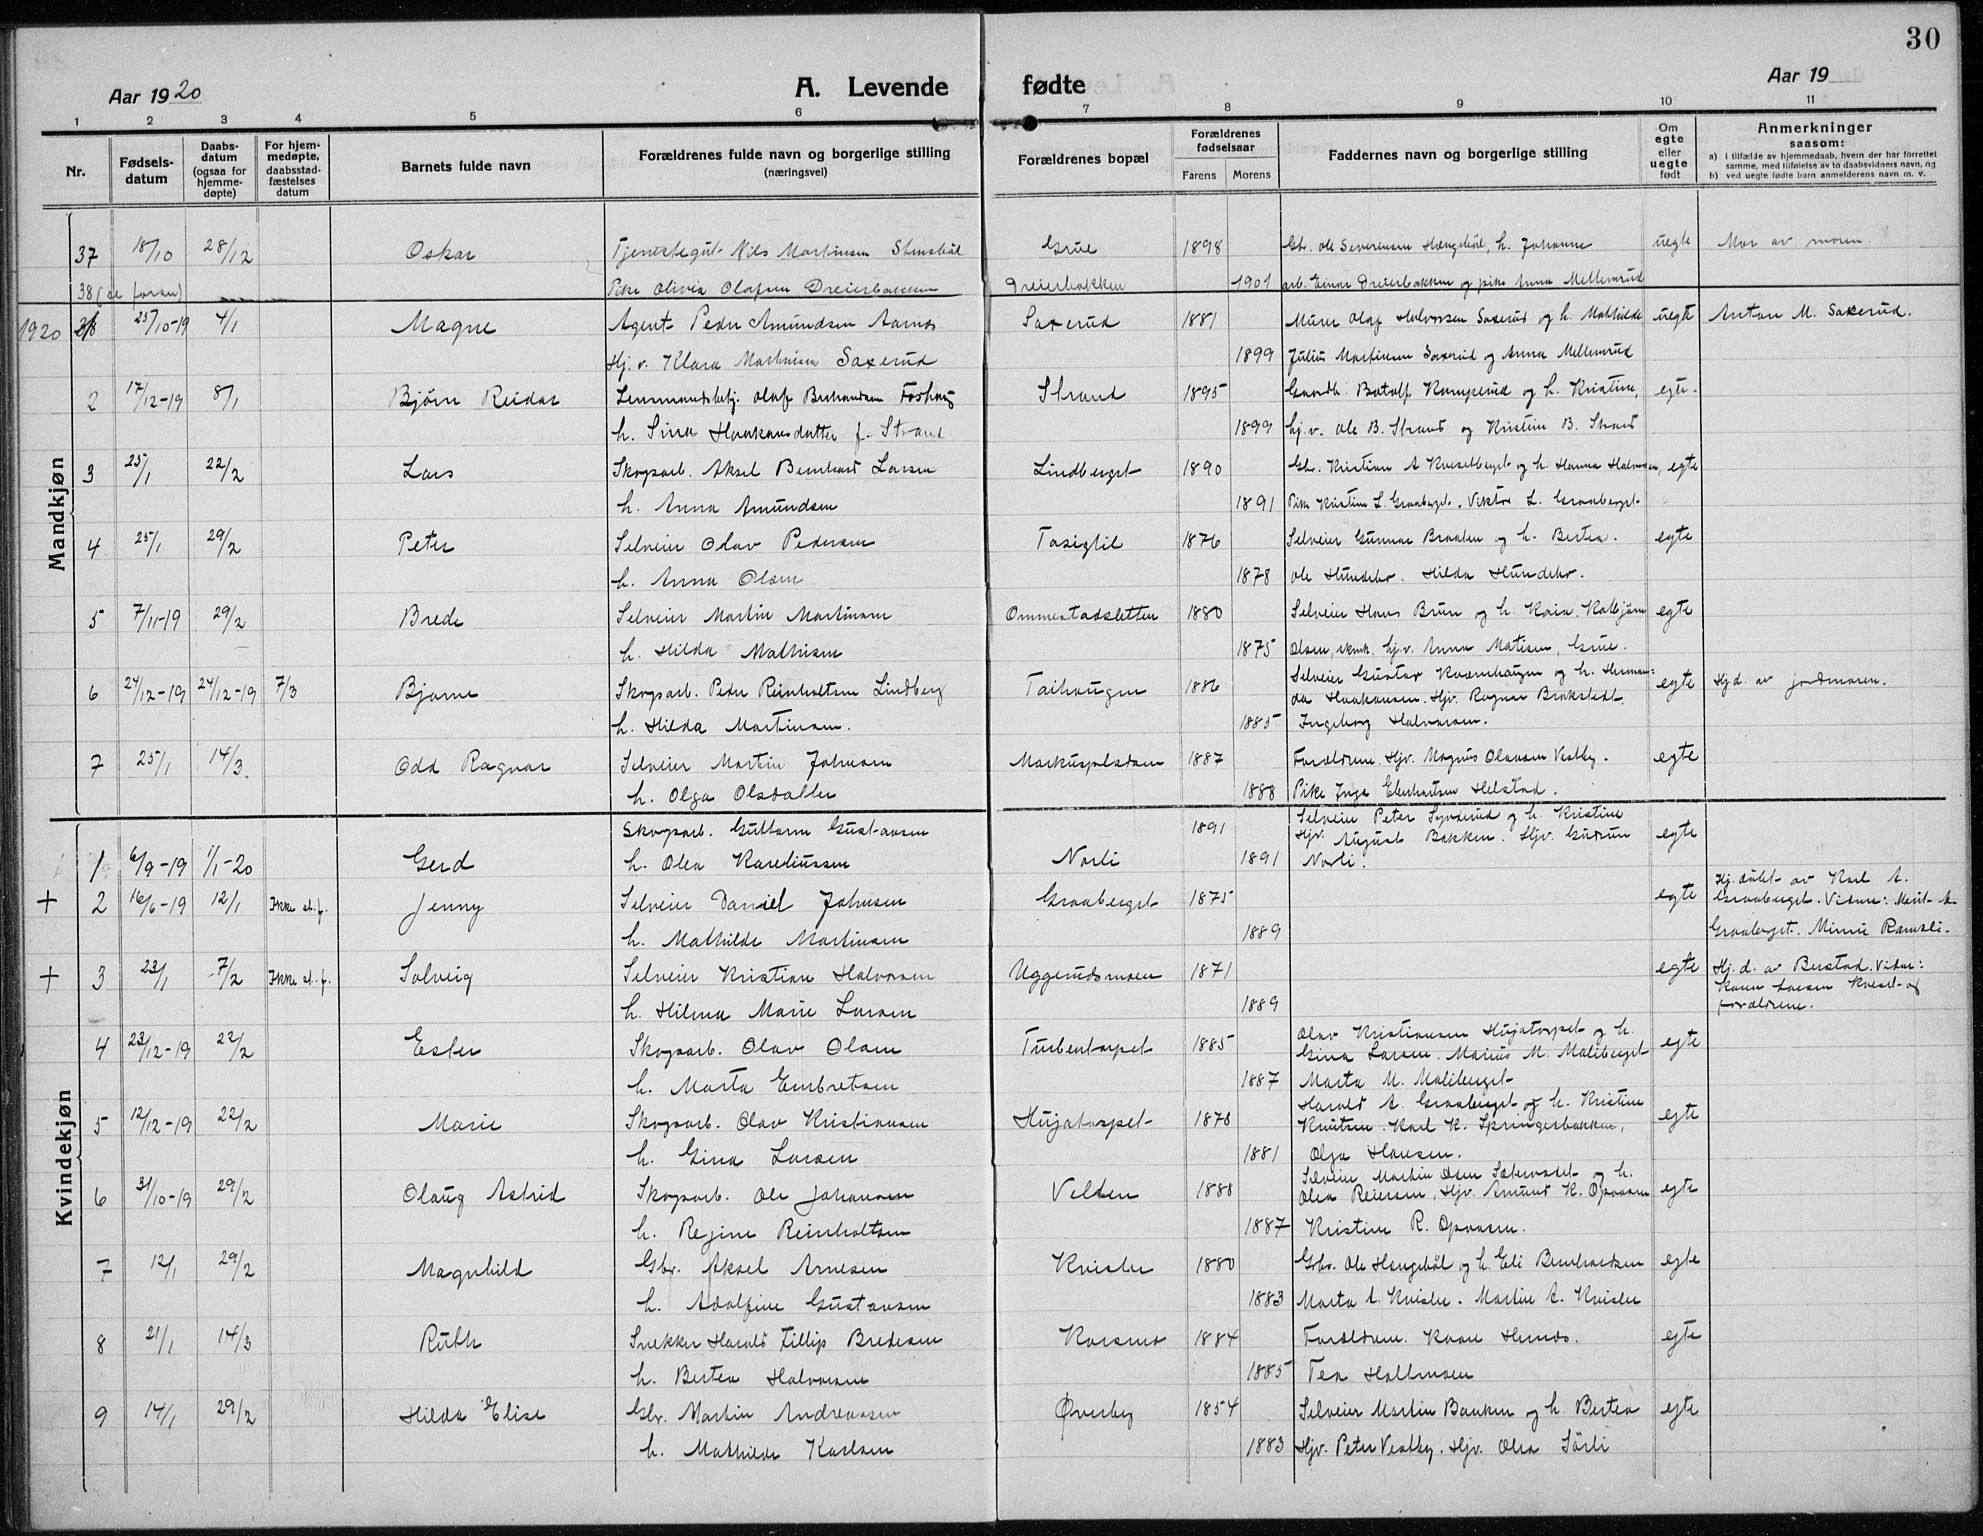 30
Aar 1920
A. Levende fødte
Aar 19
1 2 3 4 5 6 7 8 9 10 11
Nr.
Fødsels-datum
Daabs-datum (ogsaa for hjemme-døpte)
For hjem-medøpte, daabsstad-fæstelses datum
Barnets fulde navn
Forældrenes fulde navn og borgerlige stilling (næringsvei)
Forældrenes bopæl
Forældrenes fødselsaar
Farens Morens
Faddernes navn og borgerlige stilling
Om egte eller uegte født
Anmerkninger saasom:
a) i tilfælde av hjemmedaab, hvem der har forrettet samme, med tilføielse av to daabsvidners navn, og
b) ved uegte fødte barn anmelderens navn m. v.
Mandkjøn
37 18/10 28/12 Oskar Tjenestegut Nils Martinsen Grue 1898 Gbr. Ole Severinsen h. Johanne uegte Mor av moren
38 (se foran) Pike Olivia Olafsen Dreierbakken Dreierbakken 1901 arb. Einar Dreierbakken og pike Anna Mellemrud
1920 25/10-19 4/1 Magne Agent Peder Amundsen Aarnes Saxerud 1881 Murer Olaf Halvorsen Saxerud og h. Mathilde uegte Anton M. Saxerud.
Hj. v. Klara Mathisen Saxerud 1899 Julius Martinsen Saxerud og Anna Mellemrud
2 17/12-19 8/1 Bjørn Reidar Lensmandsbetj. Olaf Strand 1895 Gaardb. Botolf Kamperud og h. Kristine, egte.
h. Sina Haakonsdatter f. Strand 1899 hj.v. Ole B. Strand og Kristine B. Strand
3 25/1 22/2 Lars Skogsarb. Aksel Bernhard Larsen Lindberget 1890 Gbr. Kristian A Kveselberget og h. Hanna Halvorsen, egte
h. Anna Amundsen 1891 Pike Kristine L. Graaberget. Viktor L. Graaberget
4 25/1 29/2 Peter Selveier Olav Pedersen 1876 Selveier Gunnar Braaten og h. Bertea. egte
h. Anna Olsen 1878 Ole Hundebr. Hilda Hundebr.
5 7/11-19 29/2 Brede Selveier Martin Martinsen Ommestadsletten 1880 Selveier Hans Brun og h. Kaia. Kolbjørn egte
h. Hilda Mathisen 1875 Olsen, hj.v. Anna Matisen, Grue.
6 24/12-19 24/12-19 7/3 Bjarne Skogsarb. Peder Reinholtsen Lindberg Taihaugen 1886 Selveier Gustav Kvernhaugen og h. Herman= egte Hj.d. av jordmoren.
da Haakonsen. Hjv. Ragnar Brokstedt.
h. Hilda Martinsen. 1885 Ingeborg Halvorsen.
7 25/1 14/3. Odd Ragnar Selveier Martin Johnsen 1887 Forældrene. Hjv. Magnus Olavsen Vestby. egte
h. Olga Olsdatter 1888 Pike Inga Helstad.
Kvindekjøn
Skogsarb. Guttorm Gustavsen 1891 Selveier Peter Synderud og h. Kristine
1 6/9-19 1/1-20 Gerd h. Olea Kareliussen Norli 1891 Hjv. August Bakken. Hjv. Gudrun egte
Norli.
+ 2 16/6-19 12/1 Ikke st. f. Jenny Selveier Daniel Johnsen Graaberget 1875 egte Hj.døbt av Karl A.
Graaberget. Vidne: Marit A.
h. Mathilde Martinsen 1889 Graaberget. Minnie Ramsli.
+ 3 23/1 7/2 Ikke st. f. Solveig Selveier Kristian Halvorsen Uggerudsmoen 1871 egte Hj.d. av Berstad. Vidne:
h. Hilma Marie Larsen 1889 Karen Larsen Kvesel og
forældrene.
4 23/12-19 22/2 Ester Skogsarb. Olav Olsen Turbentorpet 1885 Olav Kristiansen Hujatorpet og h. egte
Gina Larsen. Marius M. Maliberget
h. Marta Embretsen 1887 Marta M. Maliberget
5 12/12-19 22/2 Marie Skogsarb. Olav Kristiansen Hujatorpet 1878 Harald A. Graaberget og h. Kristine egte
Knutsen. Karl K. Springerbakken,
h. Gina Larsen 1881 Olga Hansen.
6 31/10-19 29/2 Olaug Astrid Skogsarb. Ole Johansen Velden 1888 Selveier Martin Olsen og h.
Olea Reiersen, Hjv. Amund K. Opaasen egte
h. Regine Reinholtsen 1887 Kristine R. Opaasen.
7 12/1 29/2 Magnhild Gbr. Aksel Arnesen Kvisler 1880 Gbr. Ole og h. Eli Bernhardsen egte
h. Adolfine Gustavsen 1883 Marta A. Kvisler. Martin A. Kvisler
8 21/1 14/3 Ruth Snekker Harald Fillip Bredesen Korsmo 1884 Forældrene. Kaare Hernes. egte
h. Bertea Halvorsen 1885 Tea Hallmoen
9 14/1 29/2 Hilda Elise Gbr. Martin Andreassen Øverby 1854 Selveier Martin Banken og h. Bertea egte
h. Mathilde Karlsen 1883 Hjv. Peter Vestby. Hjv. Olea Sörli